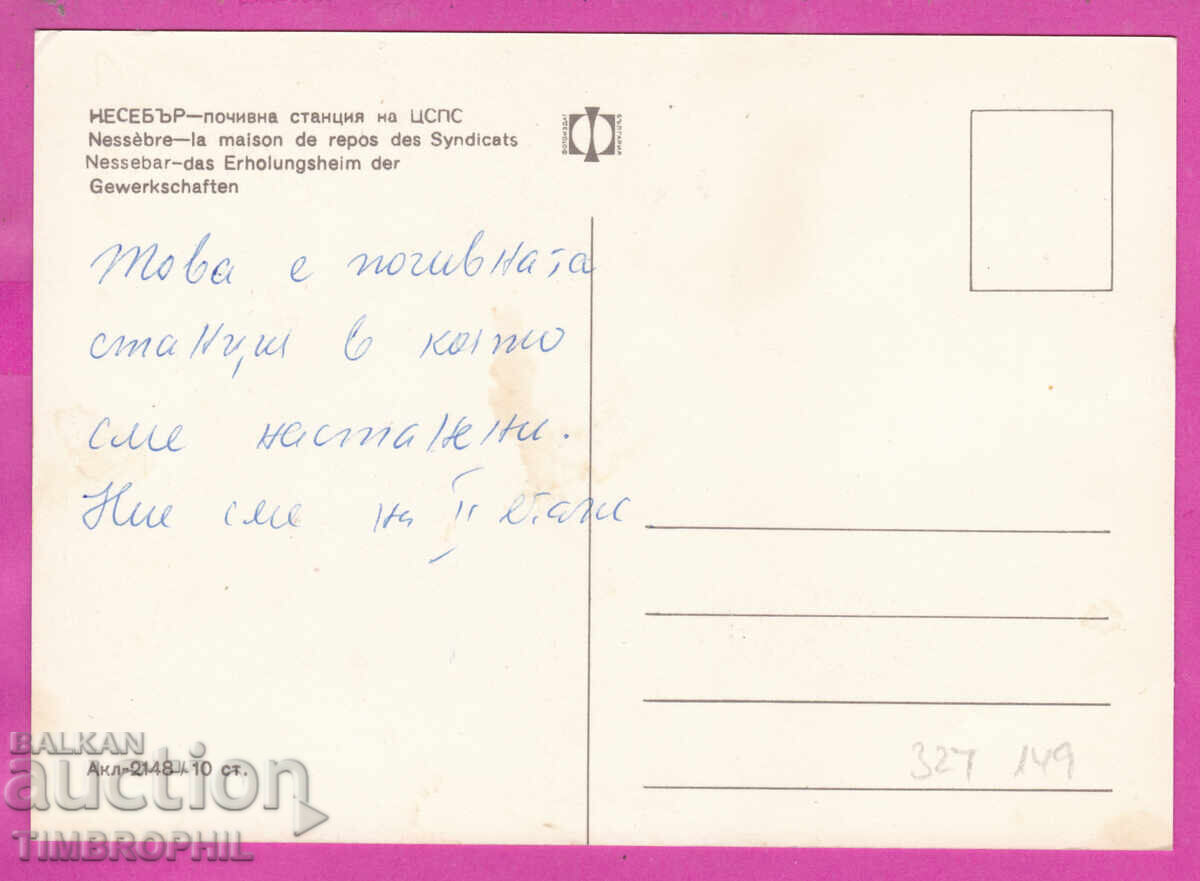 НЕСЕБЪР—почивна станция на ЦСПС
Nessèbre—la maison de repos des Syndicats
Nessebar—das Erholungsheim der
Gewerkschaften
ФОТОИЗДАТ
БЪЛГАРИЯ
Това е почивната
станция в която
сме настанени.
Ние сме на II етаж
Акл-2148 / 10 ст.
327 149
BALKAN
auction
TIMBROPHIL